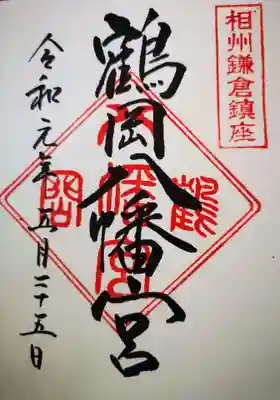 相州鎌倉鎮座
鶴岡八幡宮
鶴
岡
八幡宮
令和元年五月二十五日